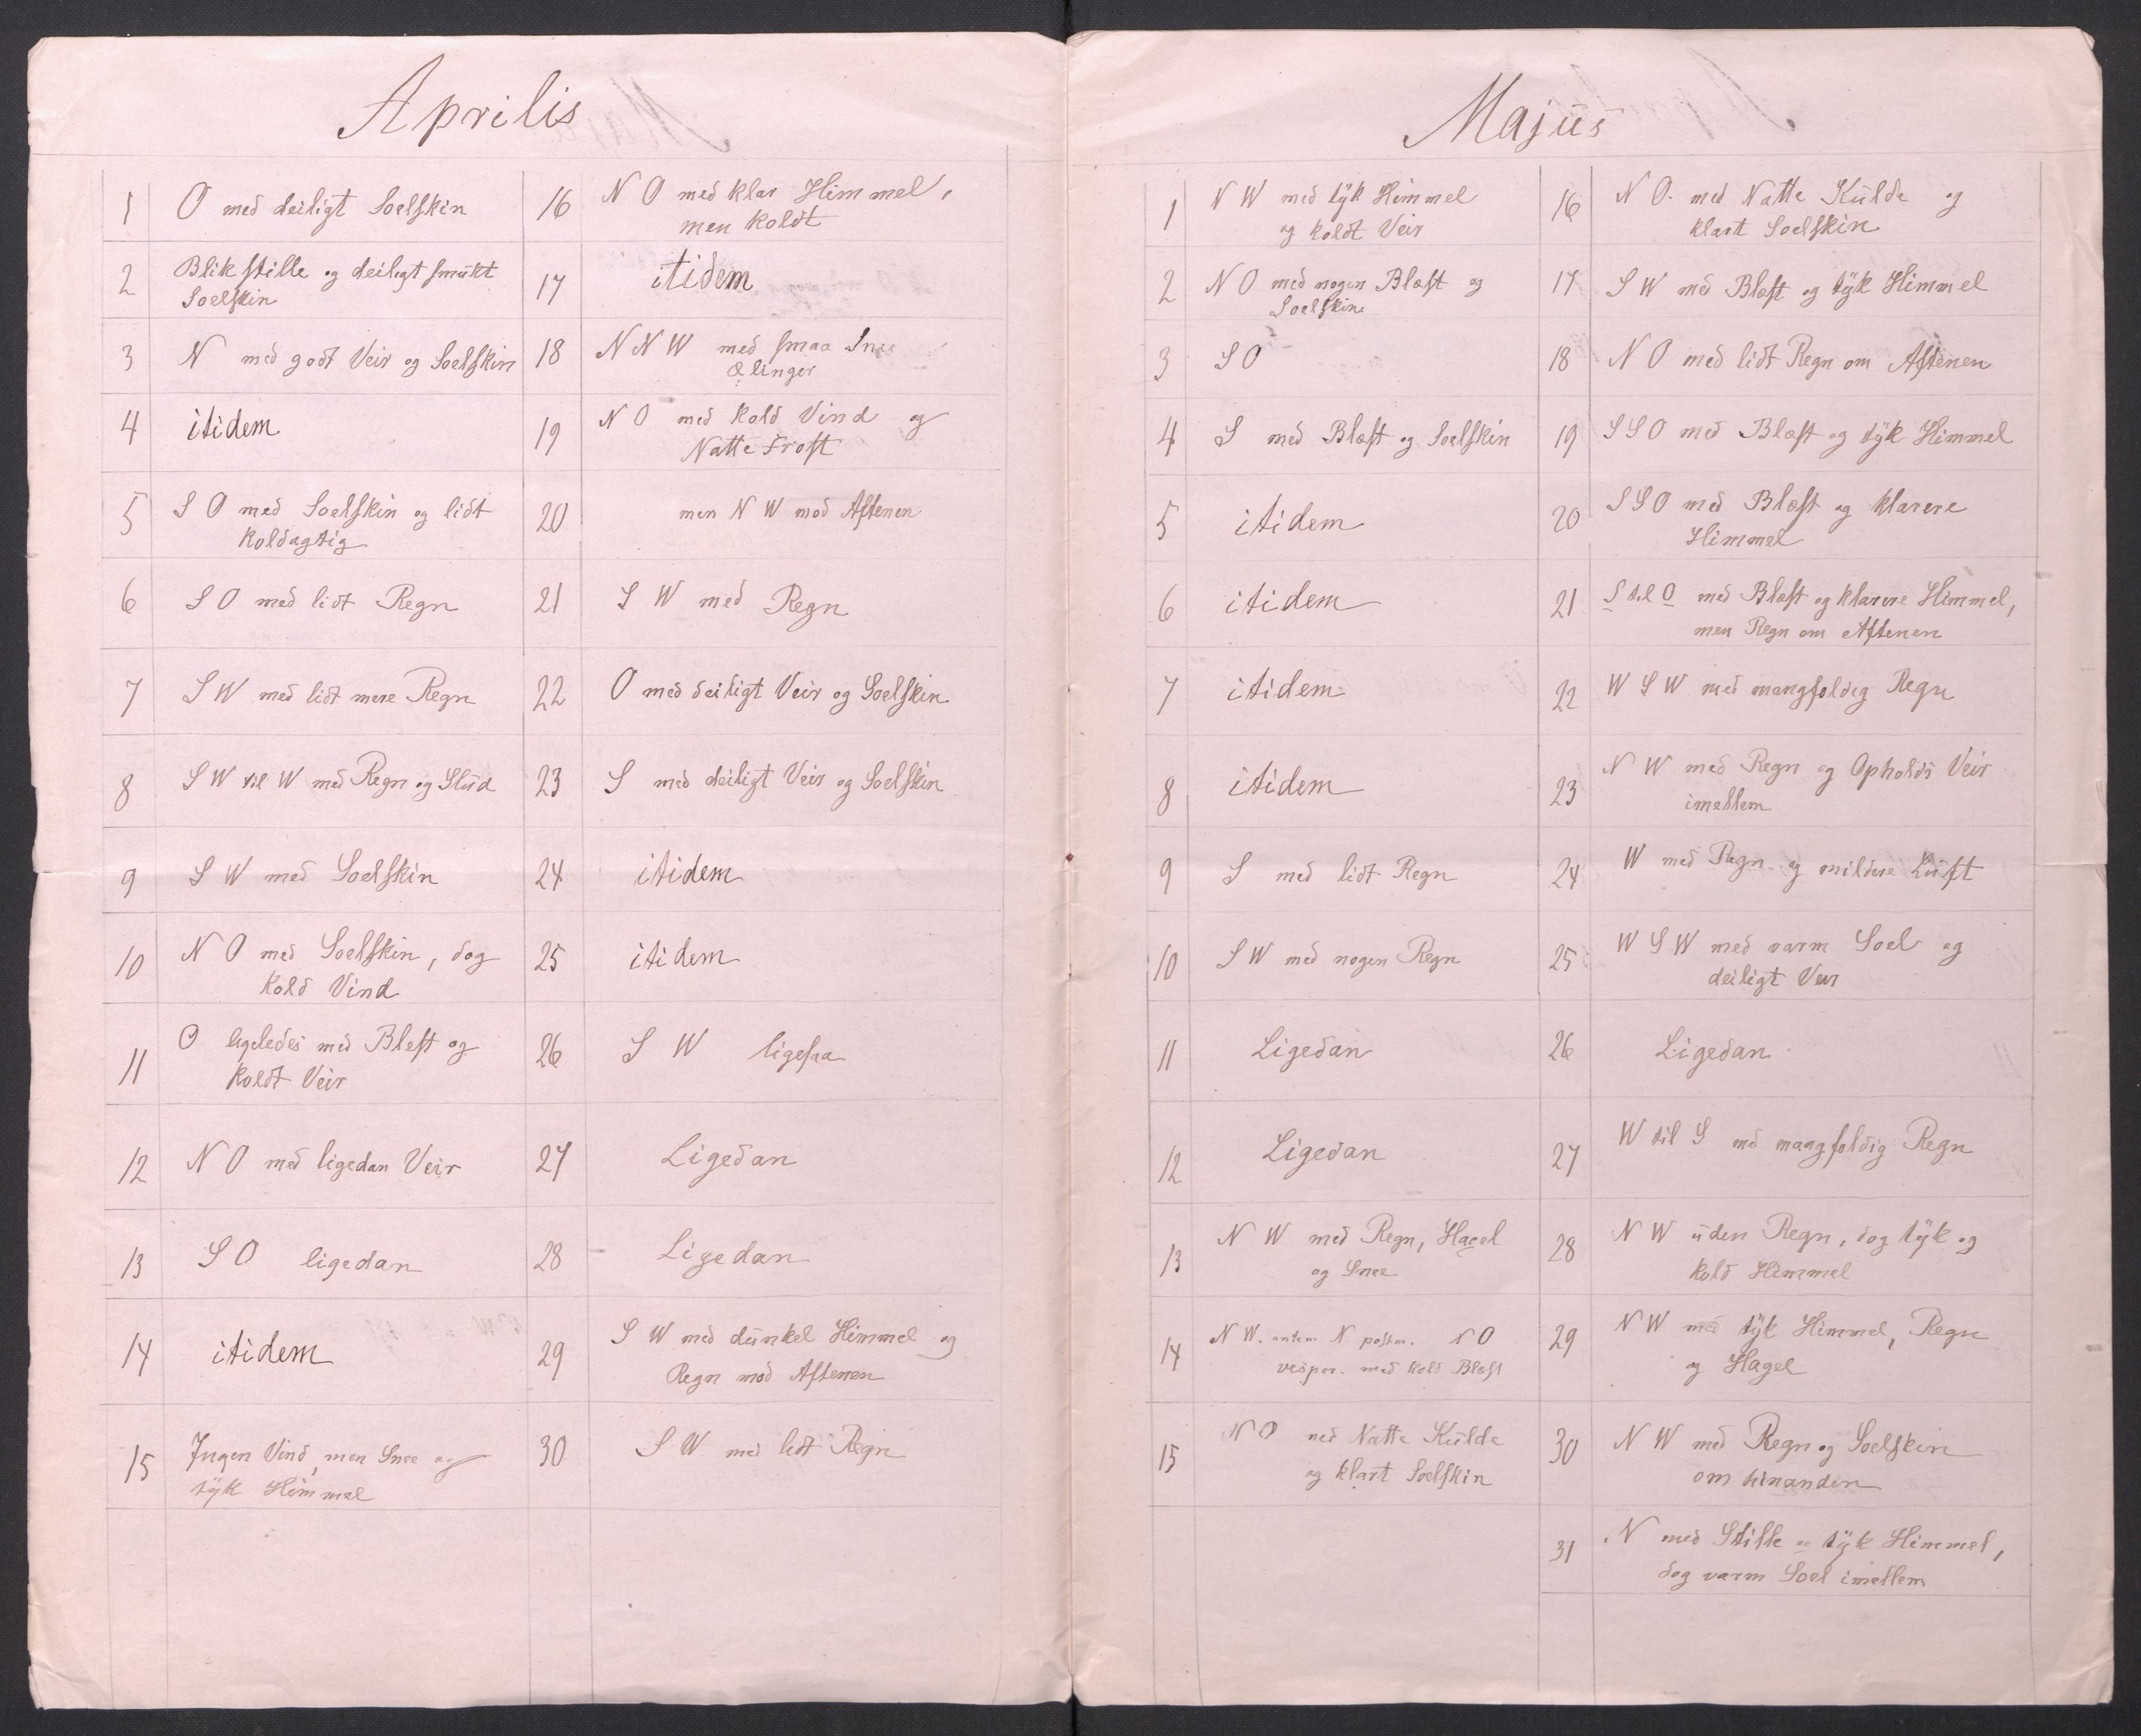 Aprilis
1 O med deiligt Soelskin
2 Blikstille og deiligt smukt
Soelskin
3 N med godt Veir og Soelskin
4 itidem
5 S O med Soelskin og lidt
koldagtig
6 S O med lidt Regn
7 S W med lidt mere Regn
8 S W til W med Regn og Slud
9 S W med Soelskin
10 N O med Soelskin, dog
kold Vind
11 O ligeledes med Blest og
koldt Veir
12 N O med ligedan Veir
13 S O ligedan
14 itidem
15 Ingen Vind, men Snee og
tÿk Himmel
16 N O med klar Himmel,
men koldt
17 itidem
18 N N W med smaa Snee
Ølinger
19 N O med kold Vind og
Natte Frost
20 men N W mod Aftenen
21 S W med Regn
22 O med deiligt Veir og Soelskin
23 S med deiligt Veir og Soelskin
24 itidem
25 itidem
26 S W ligesaa
27 Ligedan
28 Ligedan
29 S W med dunkel Himmel og
Regn mod Aftenen
30 S W med lidt Regn
Majus
1 N W med tÿk Himmel
og koldt Veir
2 N O med nogen Blæst og
Soelskin
3 S O
4 S med Blæst og Soelskin
5 itidem
6 itidem
7 itidem
8 itidem
9 S med lidt Regn
10 S W med nogen Regn
11 Ligedan
12 Ligedan
13 N W med Regn, Hagel
og Snee
14 N W. antem N postm. N O
vesper. med kold Blæst
15 N O med Natte Kulde
og klart Soelskin
16 N O. med Natte Kulde og
klart Soelskin
17 S W med Blæst og tÿk Himmel
18 N O med lidt Regn om Aftenen
19 S S O med Blæst og tÿk Himmel
20 S S O med Blæst og klarere
Himmel
21 S til O med Blæst og klarere Himmel,
men Regn om Aftenen
22 W S W med mangfoldig Regn
23 N W med Regn og Opholds Veir
imellem
24 W med Regn og mildere Luft
25 W S W med varm Soel og
deiligt Veir
26 Ligedan
27 W til S med mangfoldig Regn
28 N W uden Regn, dog tÿk og
kold Himmel
29 N W med tÿk Himmel, Regn
og Hagel
30 N W med Regn og Soelskin
om hinanden
31 N med Stille og tÿk Himmel,
dog varm Soel imellem